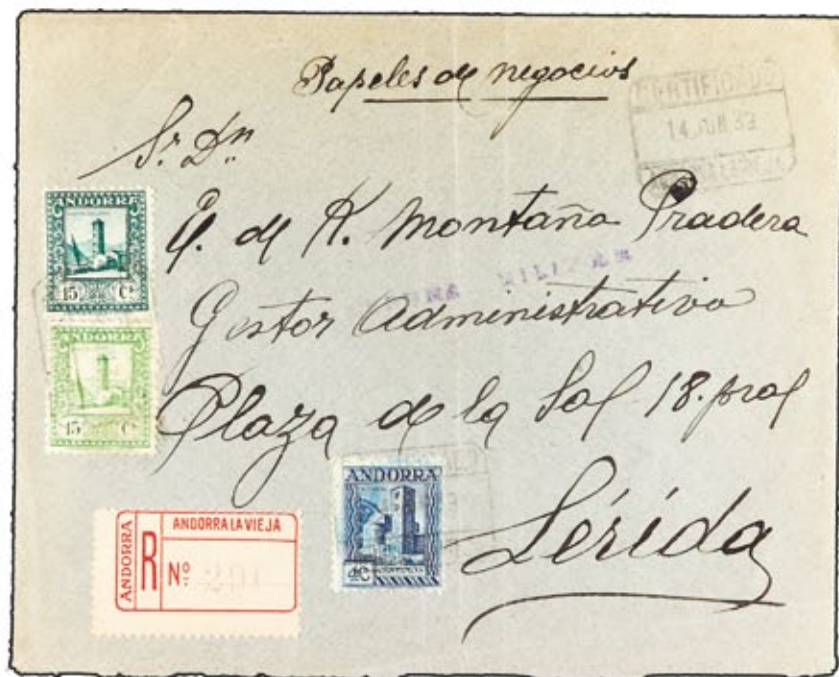 Papeles de negocios
CERTIFICADO
14 JUN 39
Sr. Dn
E. de R. Montaña Pradera
Gestor Administrativo
Plaza de la Sal 18. pral
Lérida
ANDORRA
15 Cs
ANDORRA
15 Cs
ANDORRA
MILITAR
ANDORRA
R
ANDORRA LA VIEJA
Nº